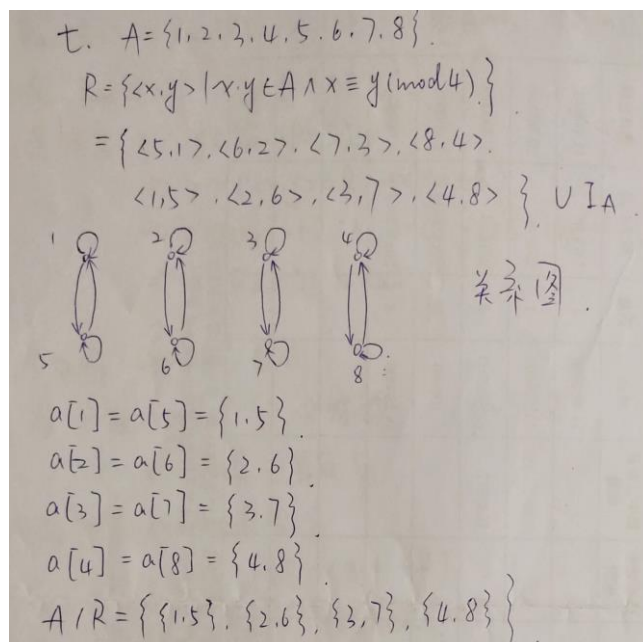 七. A={1,2,3,4,5,6,7,8}.
R={<x,y>|x,y∈A∧x≡y(mod4).}
={<5,1>,<6,2>,<7,3>,<8,4>.
<1,5>,<2,6>,<3,7>,<4,8>}. ∪ I_A.
1 2 3 4
关系图.
5 6 7 8
a[1]=a[5]={1,5}.
a[2]=a[6]={2,6}.
a[3]=a[7]={3,7}.
a[4]=a[8]={4,8}.
A/R={{1,5},{2,6},{3,7},{4,8}}.